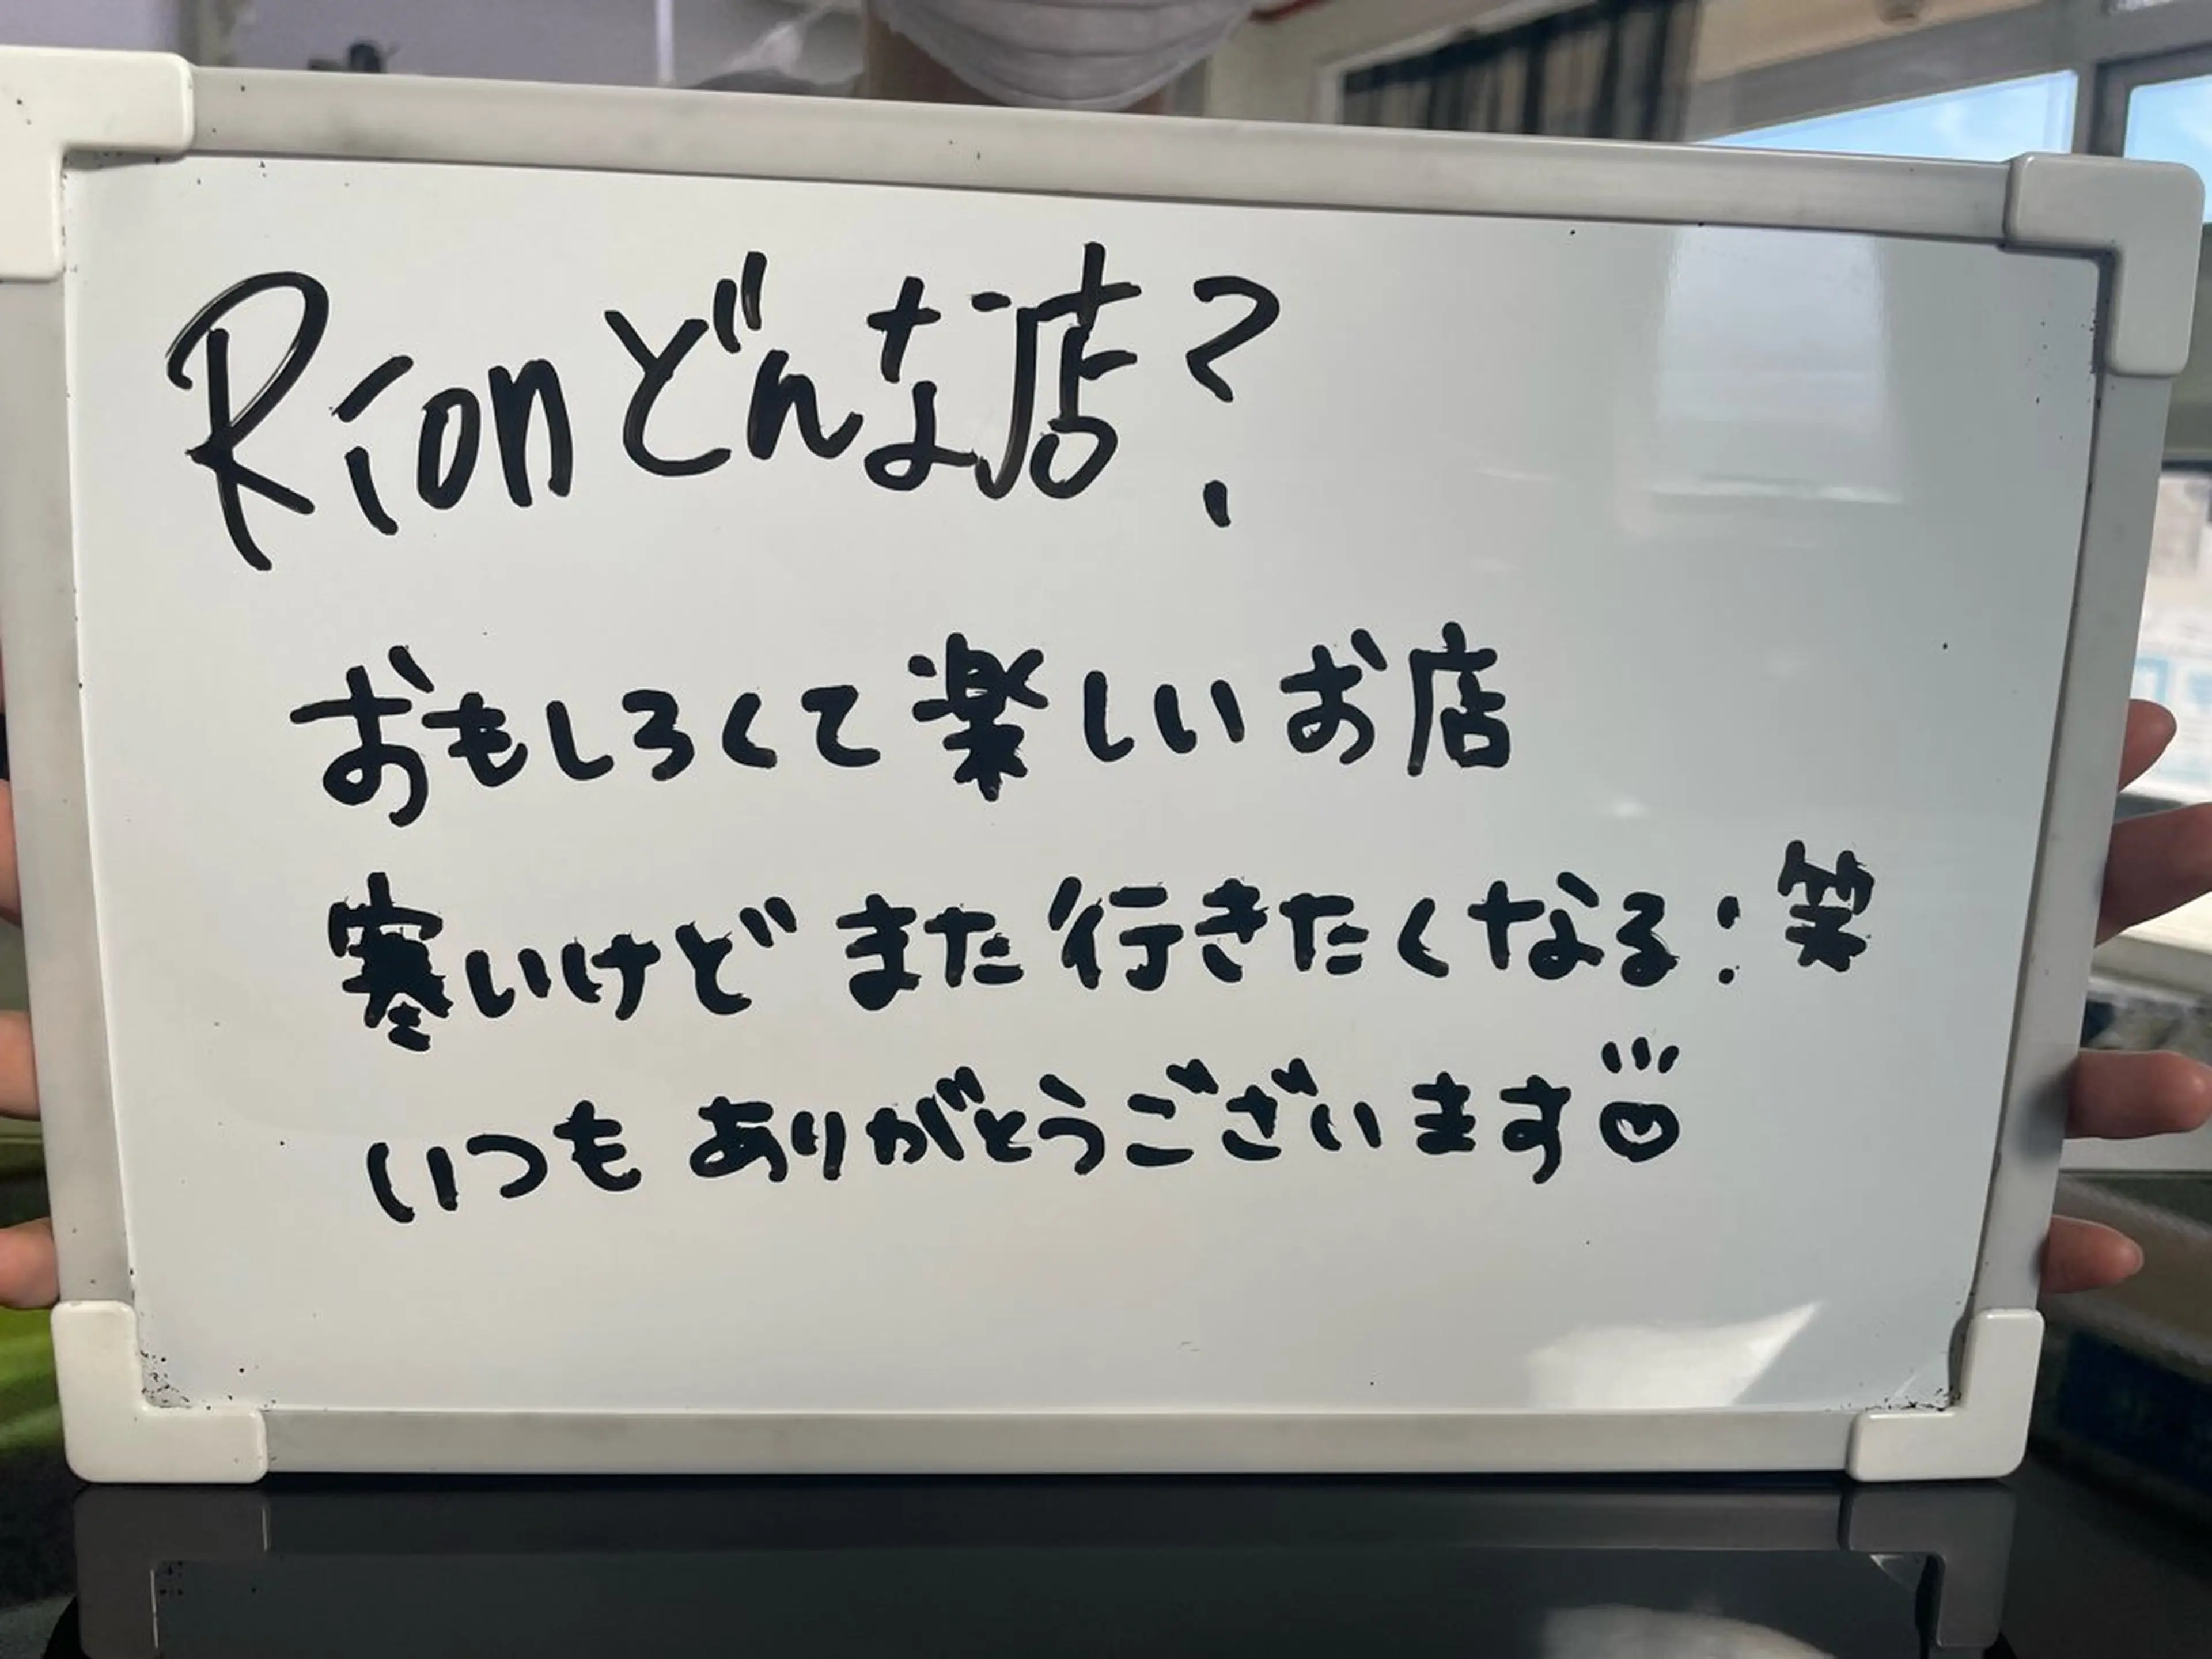 Rionどんな店?
おもしろくて楽しいお店
寒いけどまた行きたくなる:笑
いつもありがとうございます